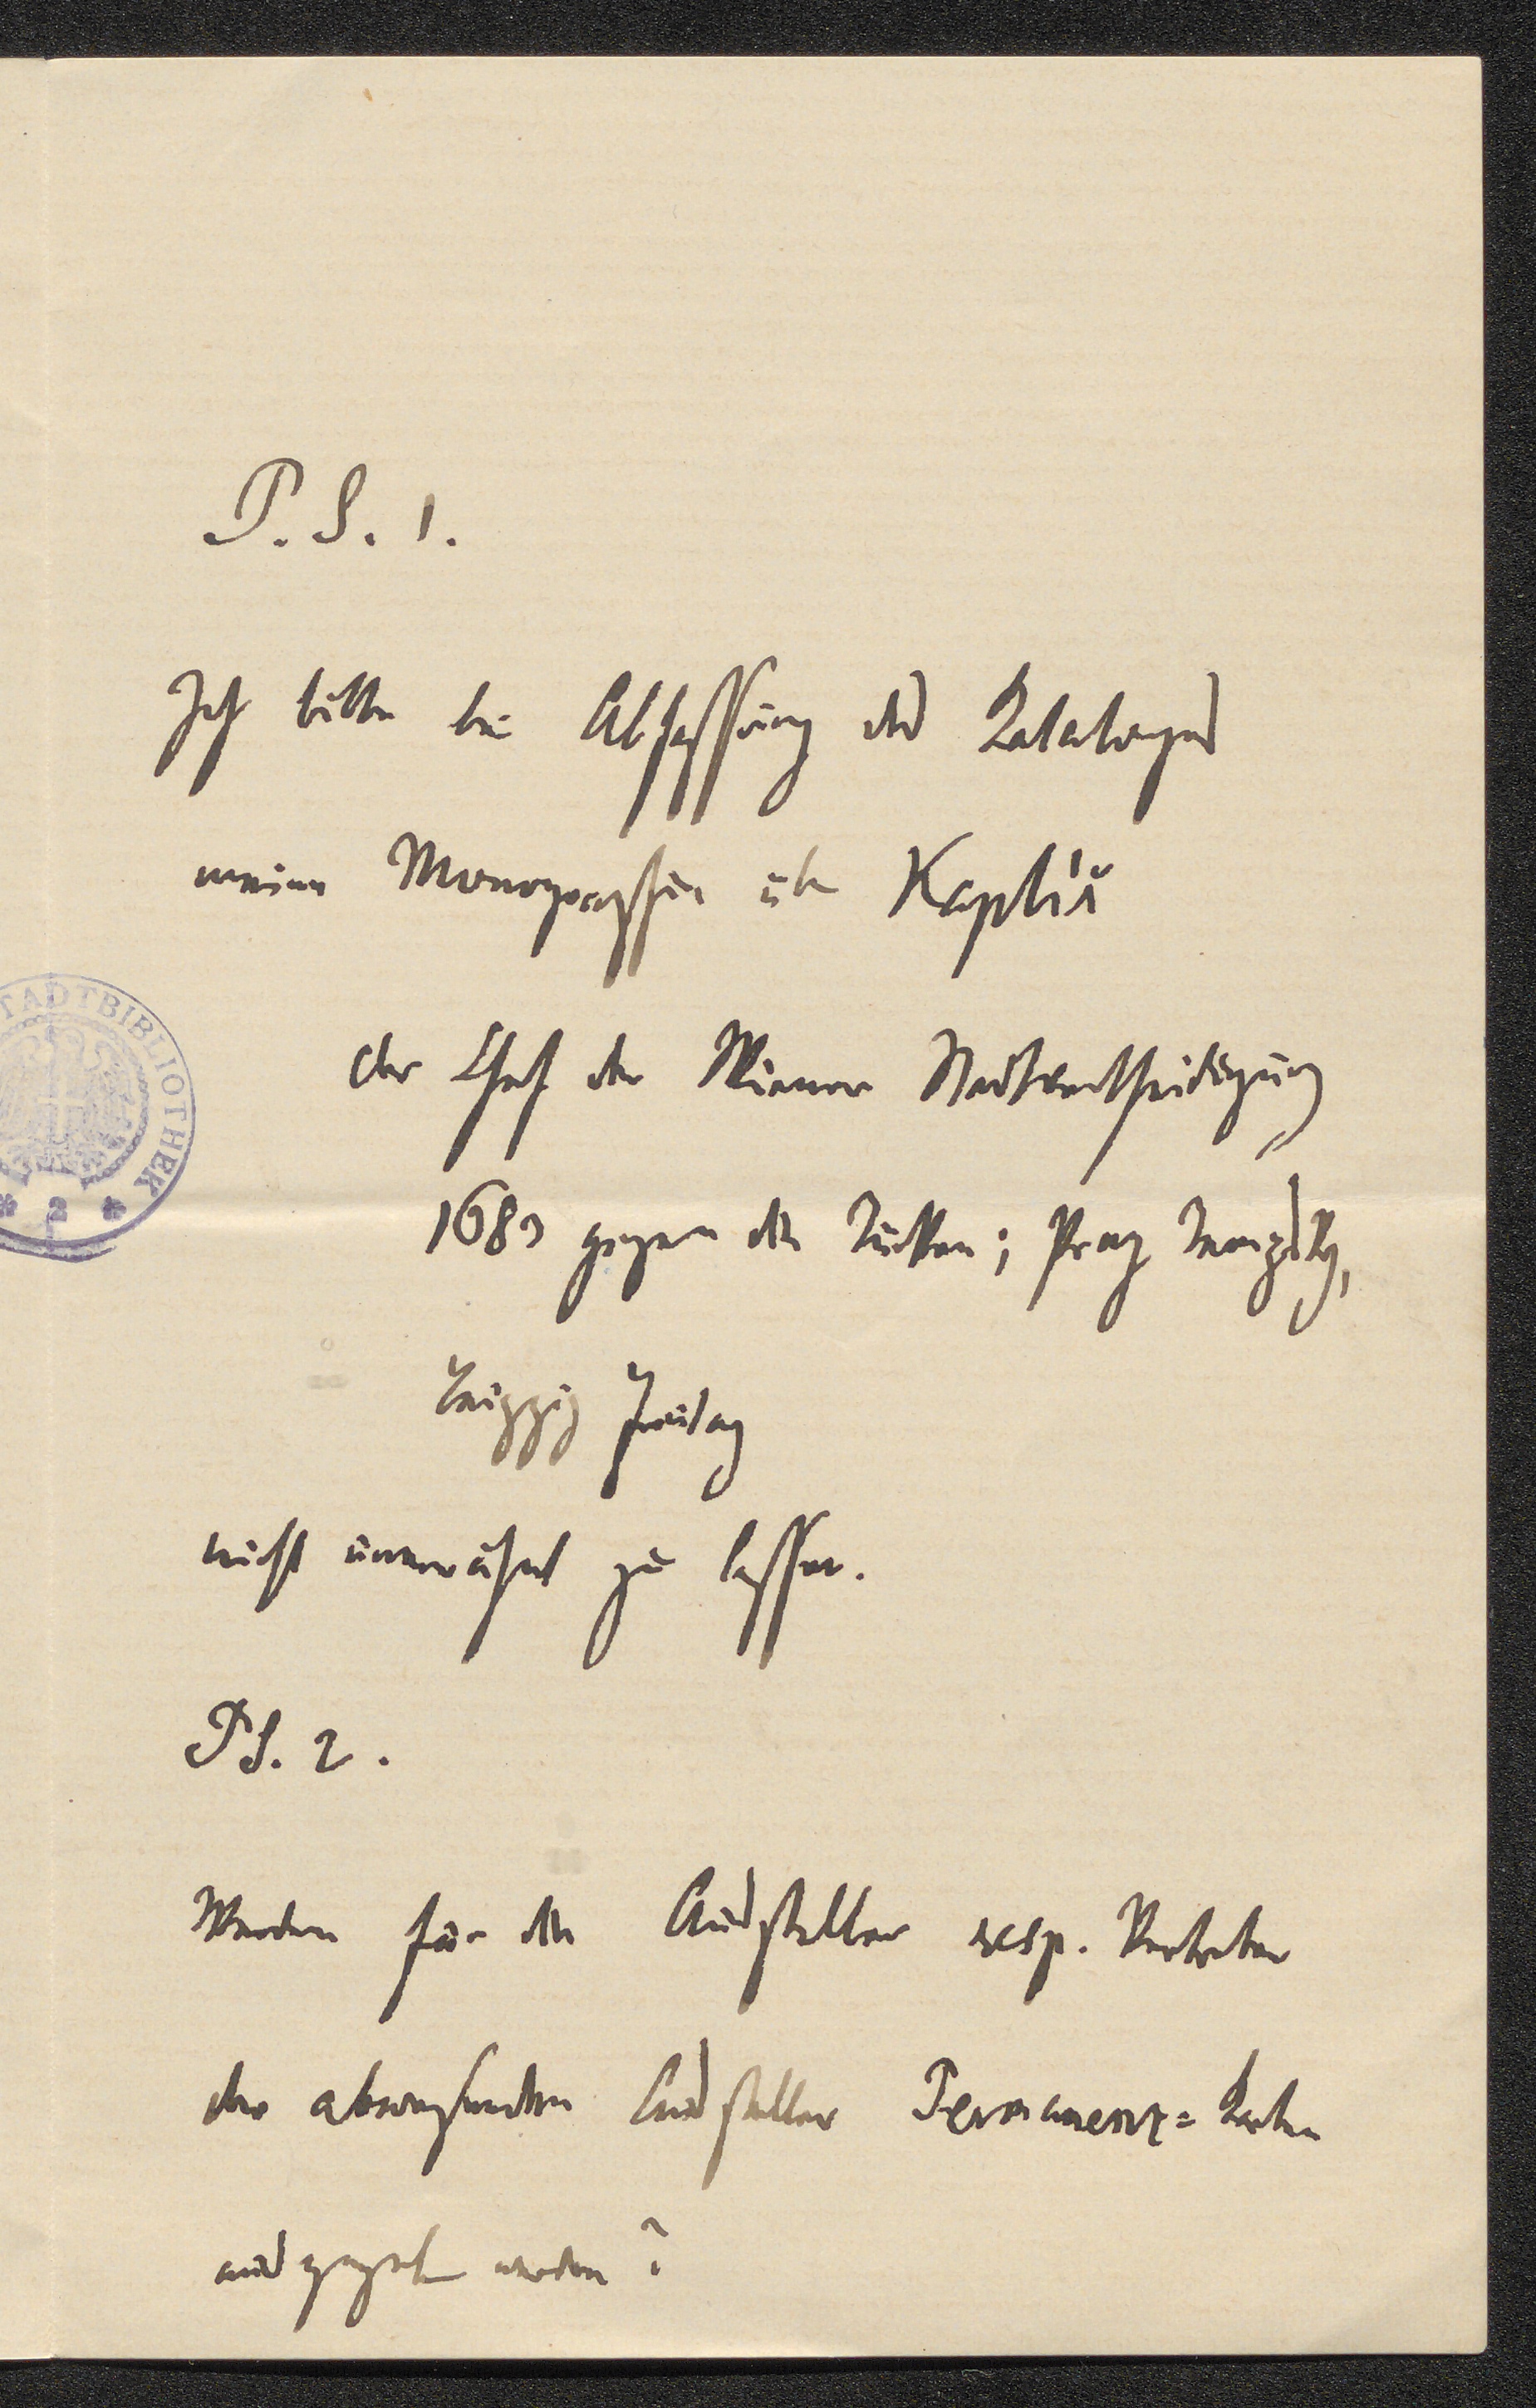 P. S. 1.
Ich bitte bei Abfassung des Kataloges
meine Monographie über Kaplíř
der Chef der Wiener Stadtvertheidigung
1683 gegen die Türken; Prag Tempsky,
Leipzig Freitag
nicht unerwähnt zu lassen.
STADTBIBLIOTHEK
* 2 *
PS. 2.
Werden für die Aussteller resp. Vertreter
der abwesenden Aussteller Permanenz=Karten
ausgegeben werden?